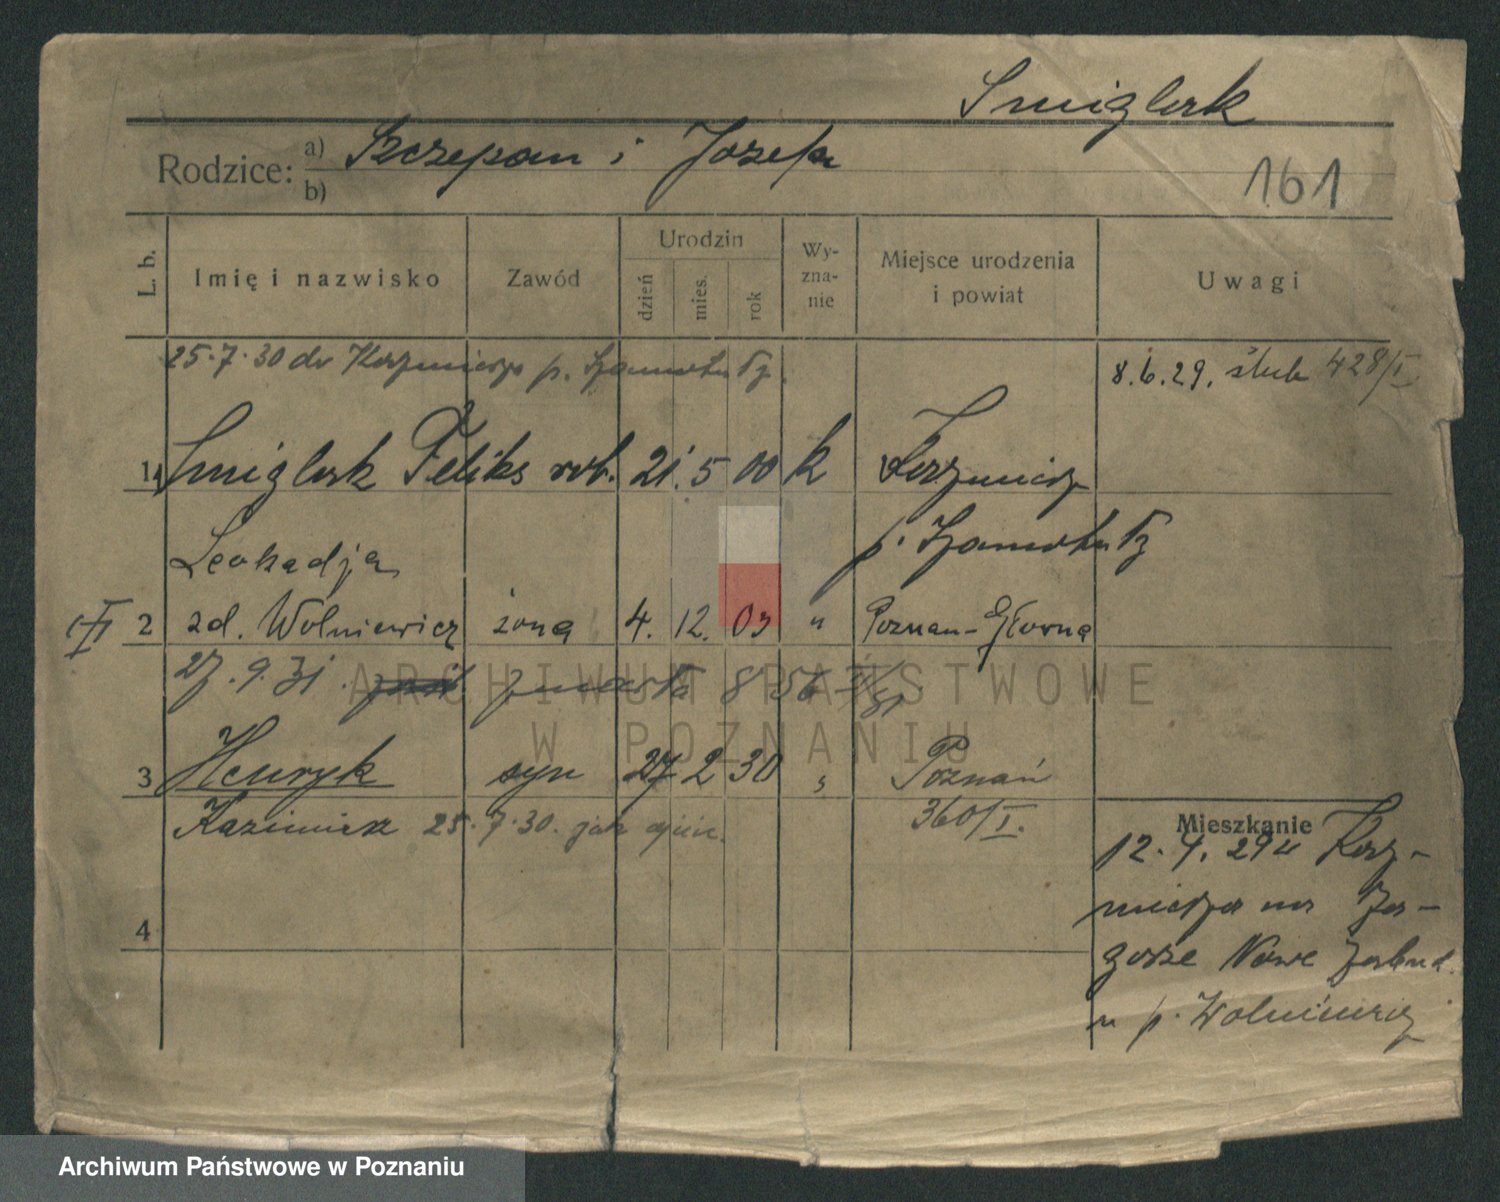 Smiglak
Rodzice: a) Szczepan i Józefa
b)
161
L. b. Imię i nazwisko Zawód Urodzin dzień mies. rok Wyznanie Miejsce urodzenia i powiat Uwagi
25.7.30 do p. Szamotuły
8.6.29. ślub 428/I
1 Smiglak Feliks rob. 21. 5 00 k
p. Szamotuły
Leokadja
2 zd. Wolniewicz żona 4. 12. 03 " Poznan-Głowna
27.9.31. zmarła 856
3 Henryk syn 27 2 30 " Poznań
Kazimierz 25.7.30. jak ojciec. 360/I.
Mieszkanie
12.4.29
4
na Za-
gorze Nowe
u p. Wolniewicz
ARCHIWUM PAŃSTWOWE
W POZNANIU
Archiwum Państwowe w Poznaniu